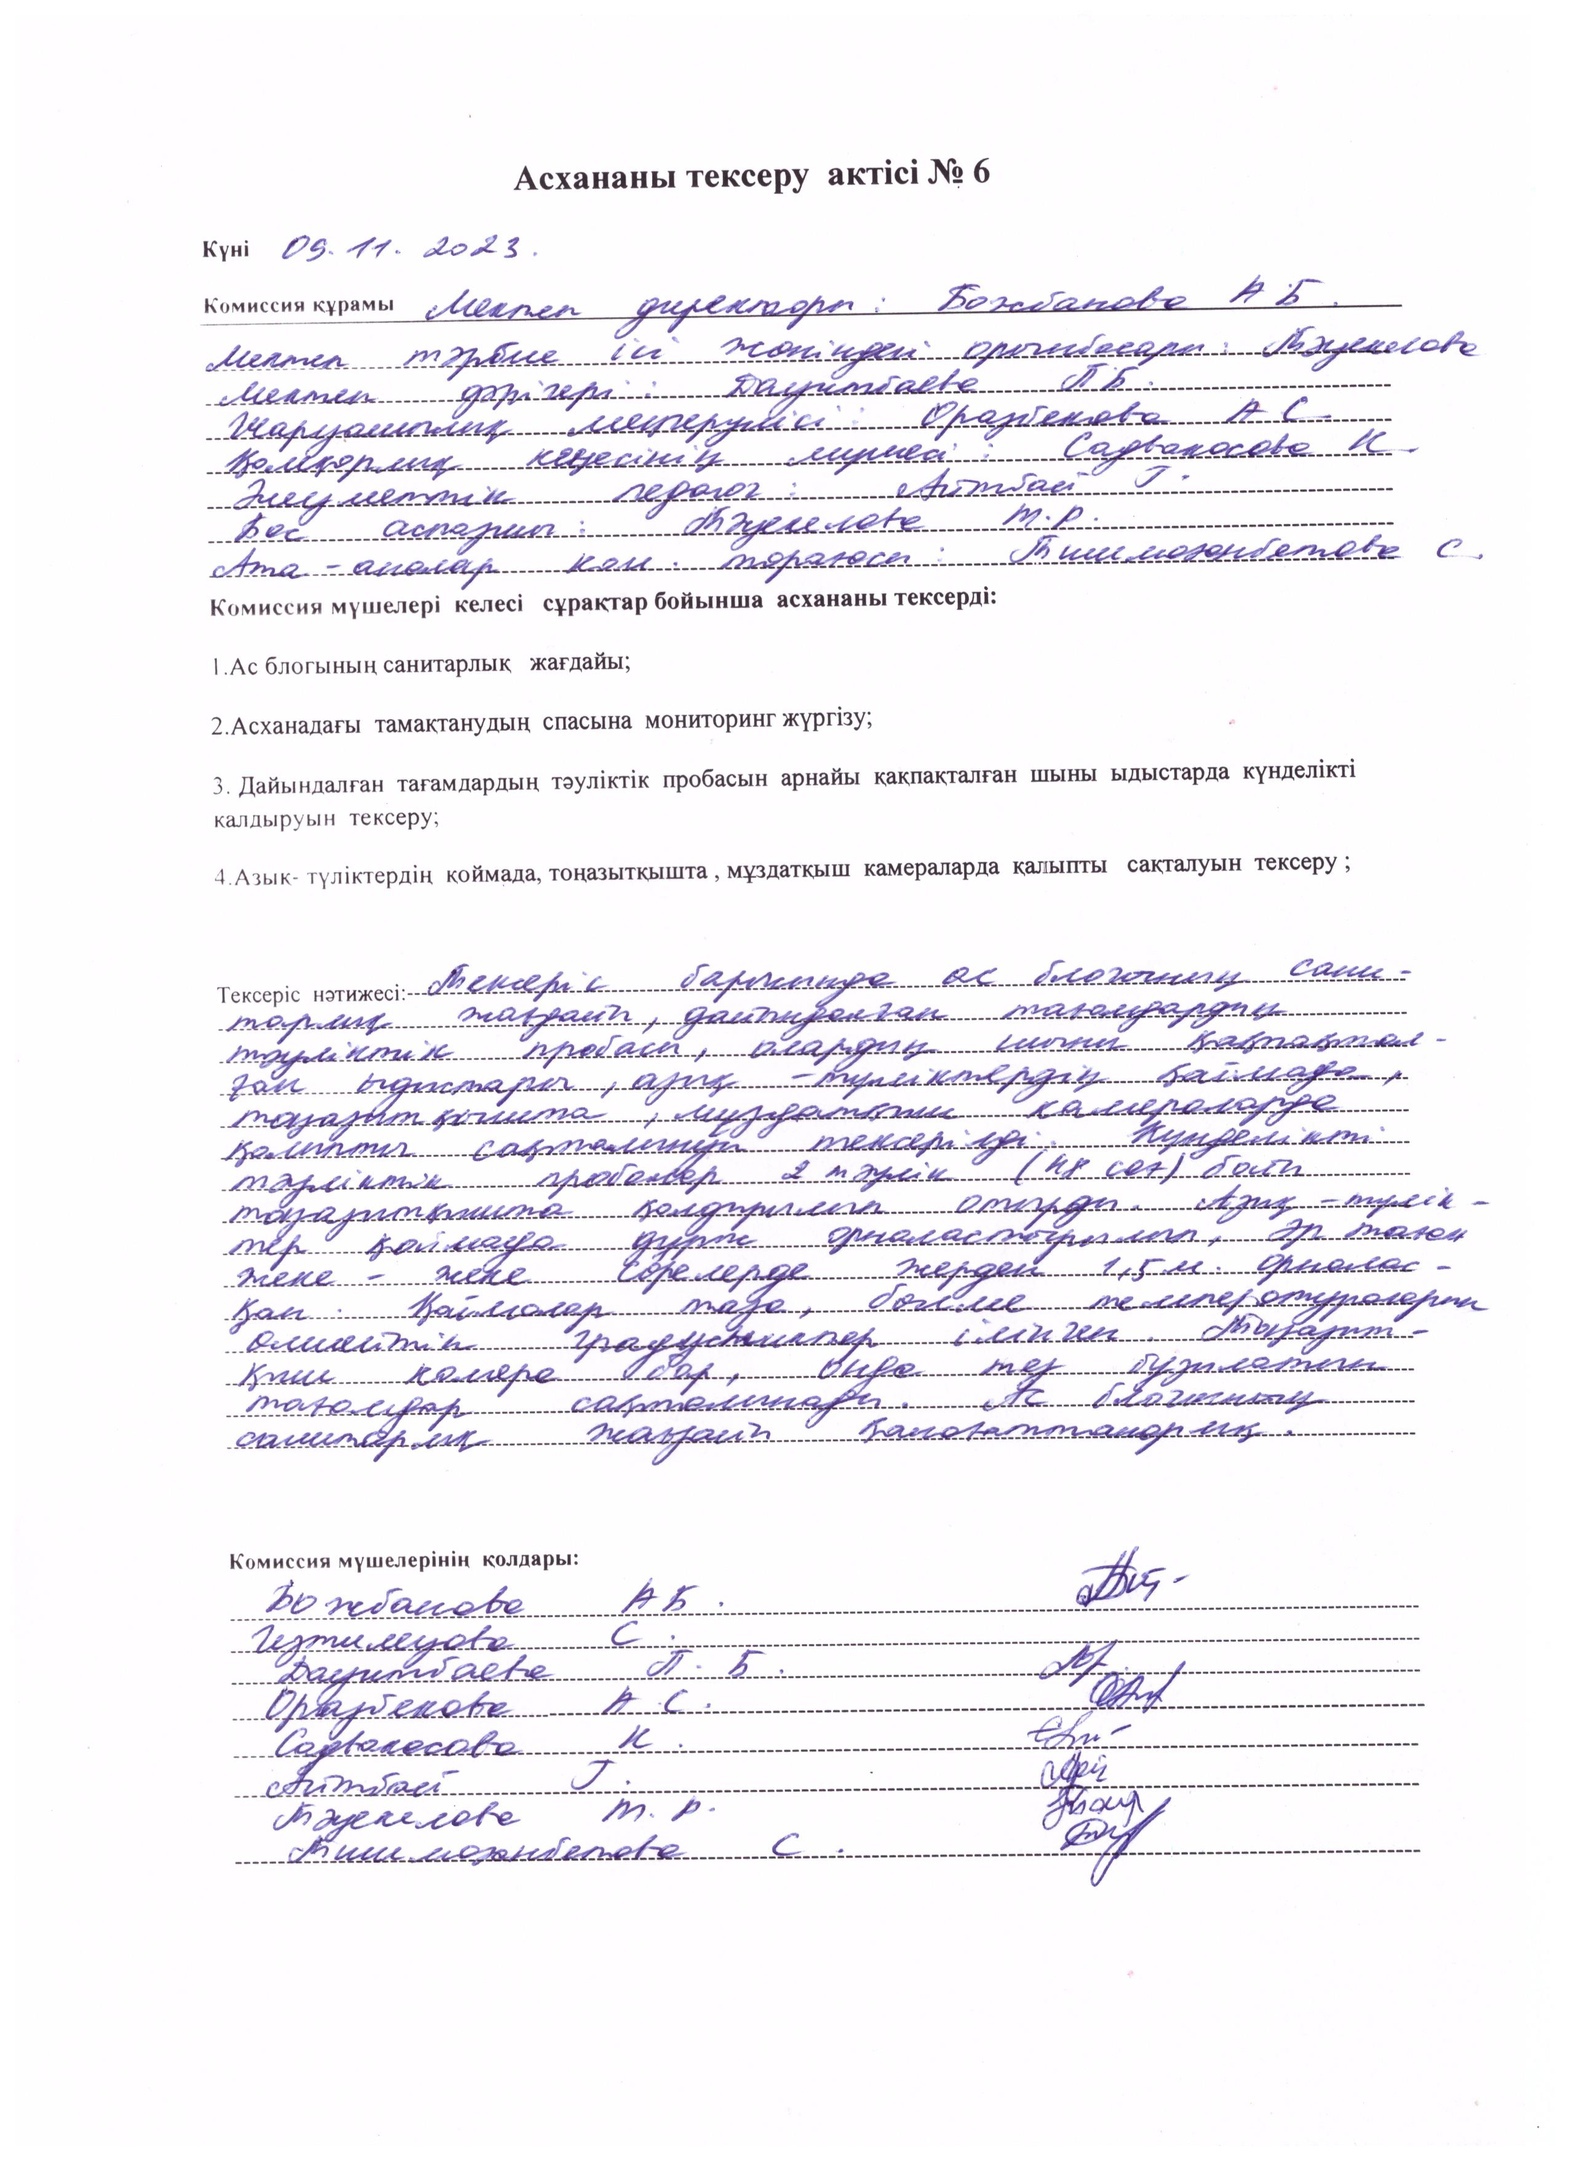 Асхананы тексеру актісі № 6
Күні 09.11.2023.
Комиссия құрамы Мектеп директоры: Божбанова А Б.
Мектеп тәрбие ісі жөніндегі орынбасары: Тәукелова
Мектеп дәрігері: Дауитбаева П Б.
Жаруашылық меңгерушісі: Оразбекова А С
Қамқорлық кеңесінің мүшесі: Садвакосова К
Әлеуметтік педагог: Айтбай Г.
Бас аспазшы: Тәукелова Т.Р.
Ата-аналар ком. төрағасы: Тишмағанбетова С
Комиссия мүшелері келесі сұрақтар бойынша асхананы тексерді:
1.Ас блогының санитарлық жағдайы;
2.Асханадағы тамақтанудың спасына мониторинг жүргізу;
3. Дайындалған тағамдардың тәуліктік пробасын арнайы қақпақталған шыны ыдыстарда күнделікті
қалдыруын тексеру;
4.Азық- түліктердің қоймада, тоңазытқышта , мұздатқыш камераларда қалыпты сақталуын тексеру ;
Тексеріс нәтижесі: Тексеріс барысында ас блогының сани-
тарлық жағдайы, дайындалған тағамдардың
тәуліктік пробасы, олардың шыны қақпақтал-
ған ыдыстары, азық-түліктердің қоймада,
тоңазытқышта, мұздатқыш камераларда
қалыпты сақталынуы тексерілді. Күнделікті
тәуліктік пробалар 2 тәулік (48 сағ) бойы
тоңазытқышта қалдырылып отырды. Азық-түлік-
тер қоймада дұрыс орналастырылып, әр тағам
жеке - жеке сөрелерде жерден 1,5 м. орналас-
қан. Қоймалар таза, бөлме температураларын
өлшейтін градусниктер ілінген. Тоңазыт-
қыш камера бар, онда тез бұзылатын
тағамдар сақталынады. Ас блогының
санитарлық жағдайы қанағаттанарлық.
Комиссия мүшелерінің қолдары:
Божбанова А Б.
С.
Дауитбаева П. Б.
Оразбекова А С.
Садвакосова К.
Айтбай Г.
Тәукелова Т. Р.
Тишмағанбетова С.